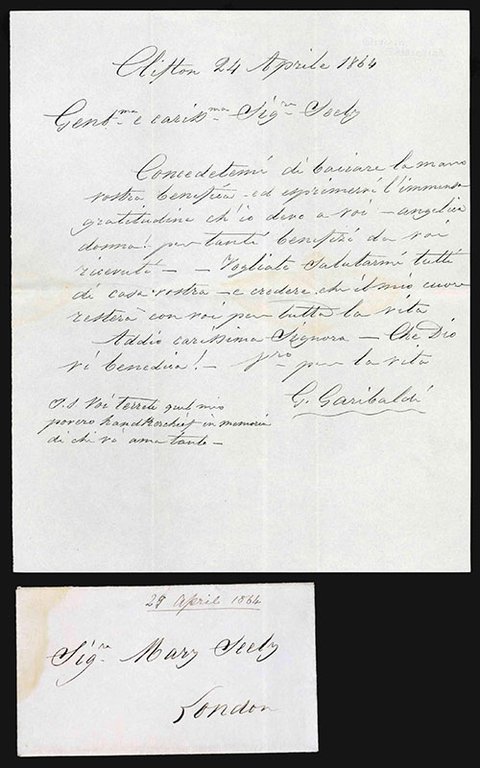 Clifton 24 Aprile 1864
Gent.ma e cariss.ma Sig.ra Seely
Concedetemi di baciare la mano
vostra benefica - ed esprimervi l'immensa
gratitudine ch'io devo a voi - angelica
donna! per tanti benefizi da voi
ricevuti - - Vogliate salutarmi tutti
di casa vostra - e credere che il mio cuore
resterà con voi per tutta la vita
Addio carissima Signora - Che Dio
vi benedica! - V.ro per la vita
G. Garibaldi
P.S Voi terrete quel mio
povero handkerchief in memoria
di chi vi ama tanto -
29 April 1864
Sig.ra Mary Seely
London